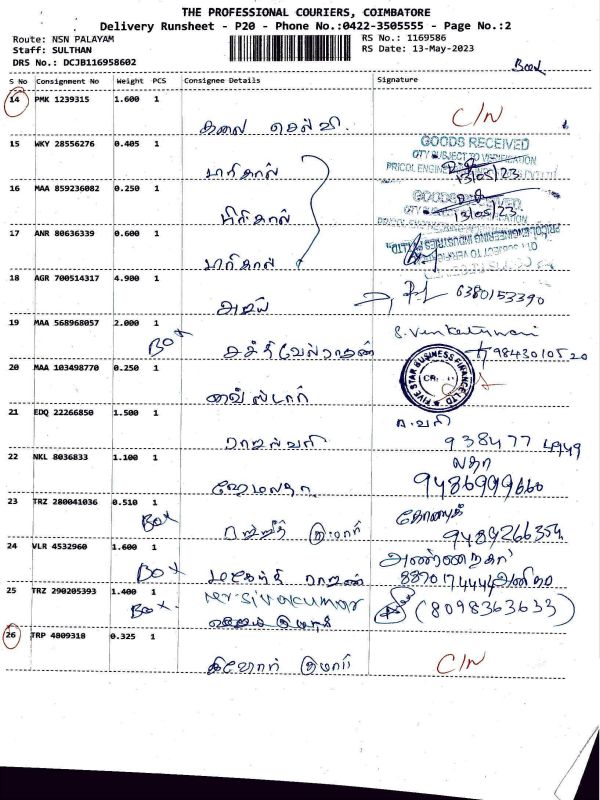 THE PROFESSIONAL COURIERS, COIMBATORE
Delivery Runsheet - P20 - Phone No.:0422-3505555 - Page No.:2
Route: NSN PALAYAM
RS No.: 1169586
Staff: SULTHAN
RS Date: 13-May-2023
DRS No.: DCJB116958602
Box
S No Consignment No Weight PCS Consignee Details Signature
14 PMK 1239315 1.600 1
கலை செல்வி. C/N
15 WKY 28556276 0.405 1
GOODS RECEIVED
QTY SUBJECT TO VERIFICATION
பரிகால்
13/05/23
16 MAA 859236082 0.250 1
GOODS RECEIVED
13/05/23
17 ANR 80636339 0.600 1
PRICOL ENGINEERING INDUSTRIES PVT LTD.,
பரிகால்
18 AGR 700514317 4.900 1
6380153390
19 MAA 568968057 2.000 1
S. Venkateswari
BOX சக்திவேல்ராஜன் 9843010520
20 MAA 103498770 0.250 1
FIVE STAR BUSINESS FINANCE LTD
21 EDQ 22266850 1.500 1
93847 74949
22 NKL 8036833 1.100 1
லதா
ஹேமலதா 9486999660
23 TRZ 280041036 0.510 1
Box குமார் 9489266354
24 VLR 4532960 1.600 1
அண்ணநகர்
Box
25 TRZ 290205393 1.400 1
Box. Mr. Sivakumar (8098363633)
26 TRP 4809318 0.325 1
கிஷோர் குமார் C/N